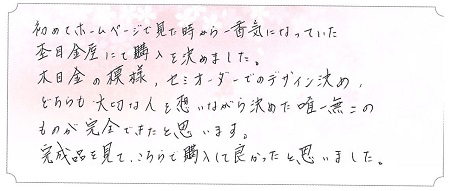 初めてホームページで見た時から一番気になっていた
杢目金屋にて購入を決めました。
木目金の模様，セミオーダーでのデザイン決め，
どちらも大切な人を想いながら決めた唯一無二の
ものが完全できたと思います。
完成品を見て、こちらで購入して良かったと思いました。